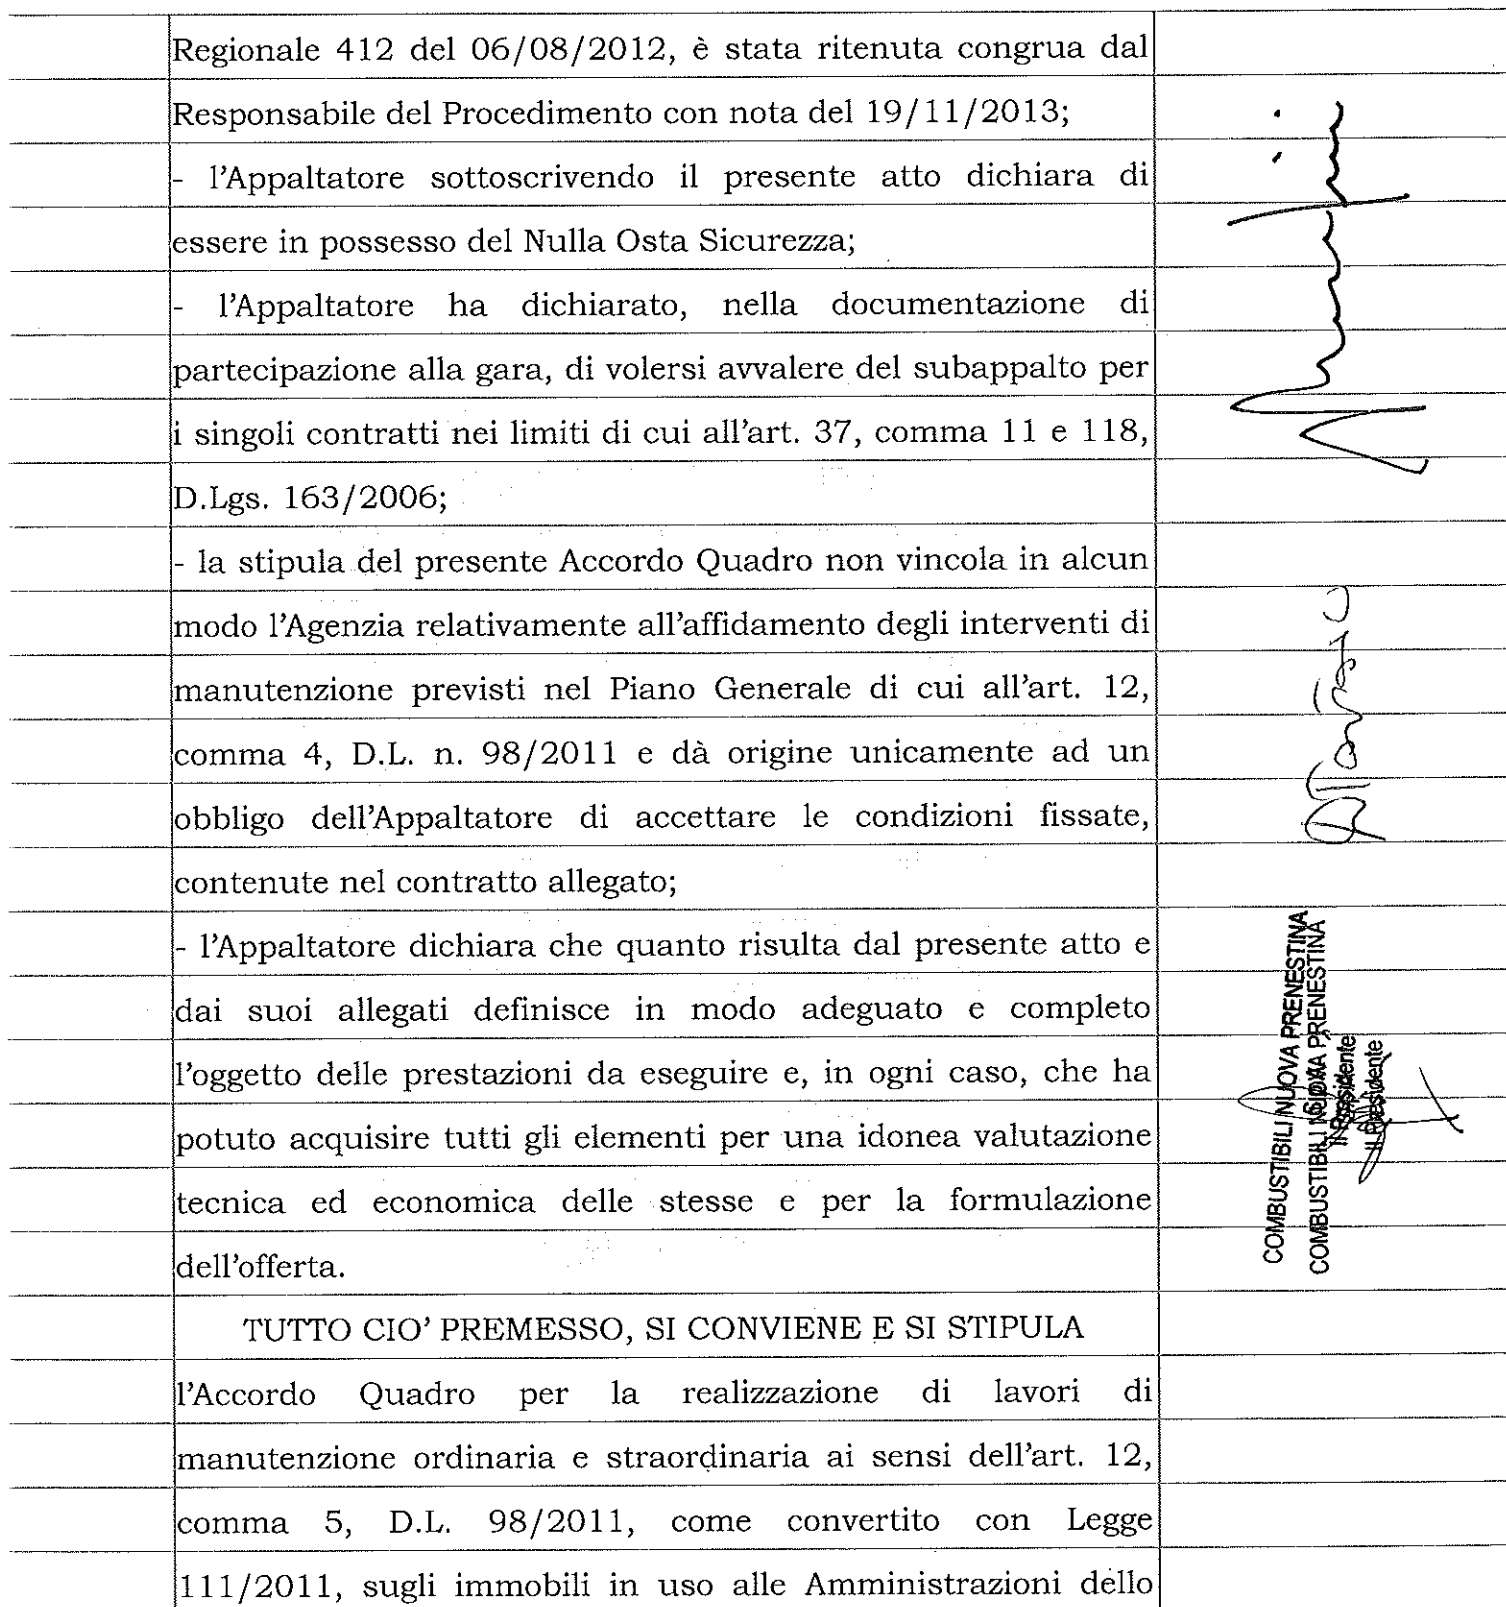 Regionale 412 del 06/08/2012, è stata ritenuta congrua dal
Responsabile del Procedimento con nota del 19/11/2013;
- l'Appaltatore sottoscrivendo il presente atto dichiara di
essere in possesso del Nulla Osta Sicurezza;
- l'Appaltatore ha dichiarato, nella documentazione di
partecipazione alla gara, di volersi avvalere del subappalto per
i singoli contratti nei limiti di cui all'art. 37, comma 11 e 118,
D.Lgs. 163/2006;
- la stipula del presente Accordo Quadro non vincola in alcun
modo l'Agenzia relativamente all'affidamento degli interventi di
manutenzione previsti nel Piano Generale di cui all'art. 12,
comma 4, D.L. n. 98/2011 e dà origine unicamente ad un
obbligo dell'Appaltatore di accettare le condizioni fissate,
contenute nel contratto allegato;
- l'Appaltatore dichiara che quanto risulta dal presente atto e
dai suoi allegati definisce in modo adeguato e completo
l'oggetto delle prestazioni da eseguire e, in ogni caso, che ha
potuto acquisire tutti gli elementi per una idonea valutazione
tecnica ed economica delle stesse e per la formulazione
dell'offerta.
TUTTO CIO' PREMESSO, SI CONVIENE E SI STIPULA
l'Accordo Quadro per la realizzazione di lavori di
manutenzione ordinaria e straordinaria ai sensi dell'art. 12,
comma 5, D.L. 98/2011, come convertito con Legge
111/2011, sugli immobili in uso alle Amministrazioni dello
COMBUSTIBILI NUOVA PRENESTINA
COMBUSTIBILI NUOVA PRENESTINA
Il Presidente
Il Presidente